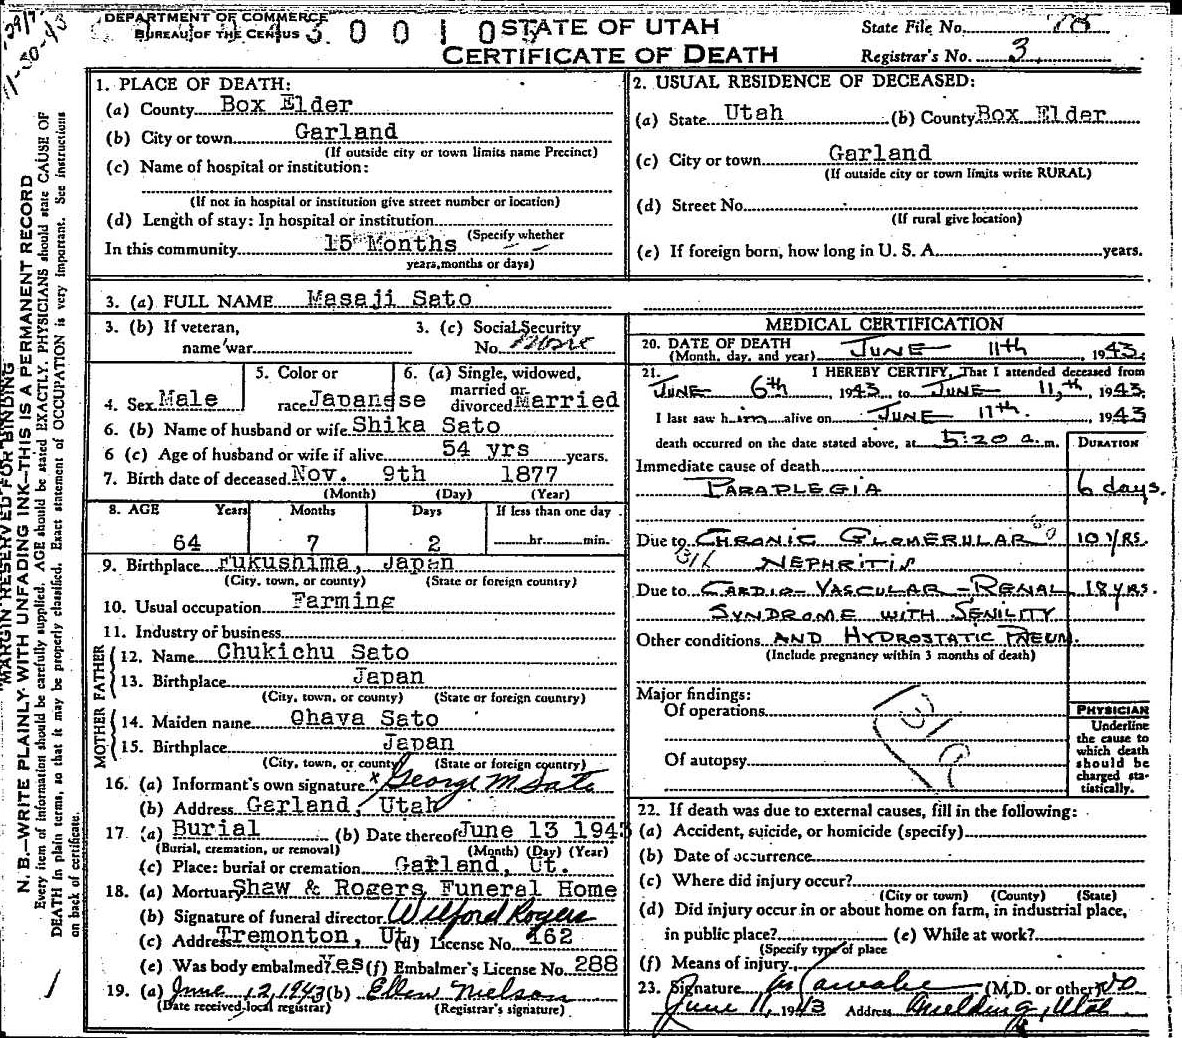 DEPARTMENT OF COMMERCE
BUREAU OF THE CENSUS
STATE OF UTAH
CERTIFICATE OF DEATH
State File No.
Registrar's No. 3
MARGIN RESERVED FOR BINDING
N. B.—WRITE PLAINLY WITH UNFADING INK—THIS IS A PERMANENT RECORD
Every item of information should be carefully supplied. AGE should be stated EXACTLY. PHYSICIANS should state CAUSE OF
DEATH in plain terms, so that it may be properly classified. Exact statement of OCCUPATION is very important. See instructions
on back of certificate.
1. PLACE OF DEATH:
(a) County Box Elder
(b) City or town Garland
(If outside city or town limits name Precinct)
(c) Name of hospital or institution:
(If not in hospital or institution give street number or location)
(d) Length of stay: In hospital or institution
(Specify whether
In this community 15 Months
years, months or days)
2. USUAL RESIDENCE OF DECEASED:
(a) State Utah (b) County Box Elder
(c) City or town Garland
(If outside city or town limits write RURAL)
(d) Street No.
(If rural give location)
(e) If foreign born, how long in U. S. A. years.
3. (a) FULL NAME Masaji Sato
3. (b) If veteran,
name war
3. (c) Social Security
No. None
4. Sex Male
5. Color or
race Japanese
6. (a) Single, widowed,
married or
divorced Married
6. (b) Name of husband or wife Shika Sato
6 (c) Age of husband or wife if alive 54 yrs years.
7. Birth date of deceased Nov. 9th 1877
(Month) (Day) (Year)
8. AGE Years Months Days If less than one day
64 7 2 hr. min.
9. Birthplace Fukushima, Japan
(City, town, or county) (State or foreign country)
10. Usual occupation Farming
11. Industry or business
FATHER
12. Name Chukichu Sato
13. Birthplace Japan
(City, town, or county) (State or foreign country)
MOTHER
14. Maiden name Ohava Sato
15. Birthplace Japan
(City, town, or county) (State or foreign country)
16. (a) Informant's own signature x George M Sato
(b) Address Garland, Utah
17 (a) Burial (b) Date thereof June 13 1943
(Burial, cremation, or removal) (Month) (Day) (Year)
(c) Place: burial or cremation Garland, Ut.
18. (a) Mortuary Shaw & Rogers Funeral Home
(b) Signature of funeral director Wilford Rogers
(c) Address Tremonton, Ut. (d) License No. 162
(e) Was body embalmed? Yes (f) Embalmer's License No. 288
19. (a) June 12, 1943 (b) Ellen Nielson
(Date received local registrar) (Registrar's signature)
MEDICAL CERTIFICATION
20. DATE OF DEATH
(Month, day, and year) JUNE 11th, 1943.
21. I HEREBY CERTIFY, That I attended deceased from
JUNE 6th, 1943, to JUNE 11,th, 1943.
I last saw him alive on JUNE 11th. 1943
death occurred on the date stated above, at 5:20 a.m.
DURATION
Immediate cause of death
PARAPLEGIA 6 days.
Due to CHRONIC GLOMERULAR 10 YRS.
NEPHRITIS
Due to CARDIO-VASCULAR-RENAL 18 YRS.
SYNDROME WITH SENILITY
Other conditions AND HYDROSTATIC PNEUM.
(Include pregnancy within 3 months of death)
Major findings:
Of operations
Of autopsy
PHYSICIAN
Underline
the cause to
which death
should be
charged sta-
tistically.
22. If death was due to external causes, fill in the following:
(a) Accident, suicide, or homicide (specify)
(b) Date of occurrence
(c) Where did injury occur?
(City or town) (County) (State)
(d) Did injury occur in or about home on farm, in industrial place,
in public place? (e) While at work?
(Specify type of place
(f) Means of injury
23. Signature (M.D. or other)
June 11, 1943 Address Fielding, Utah